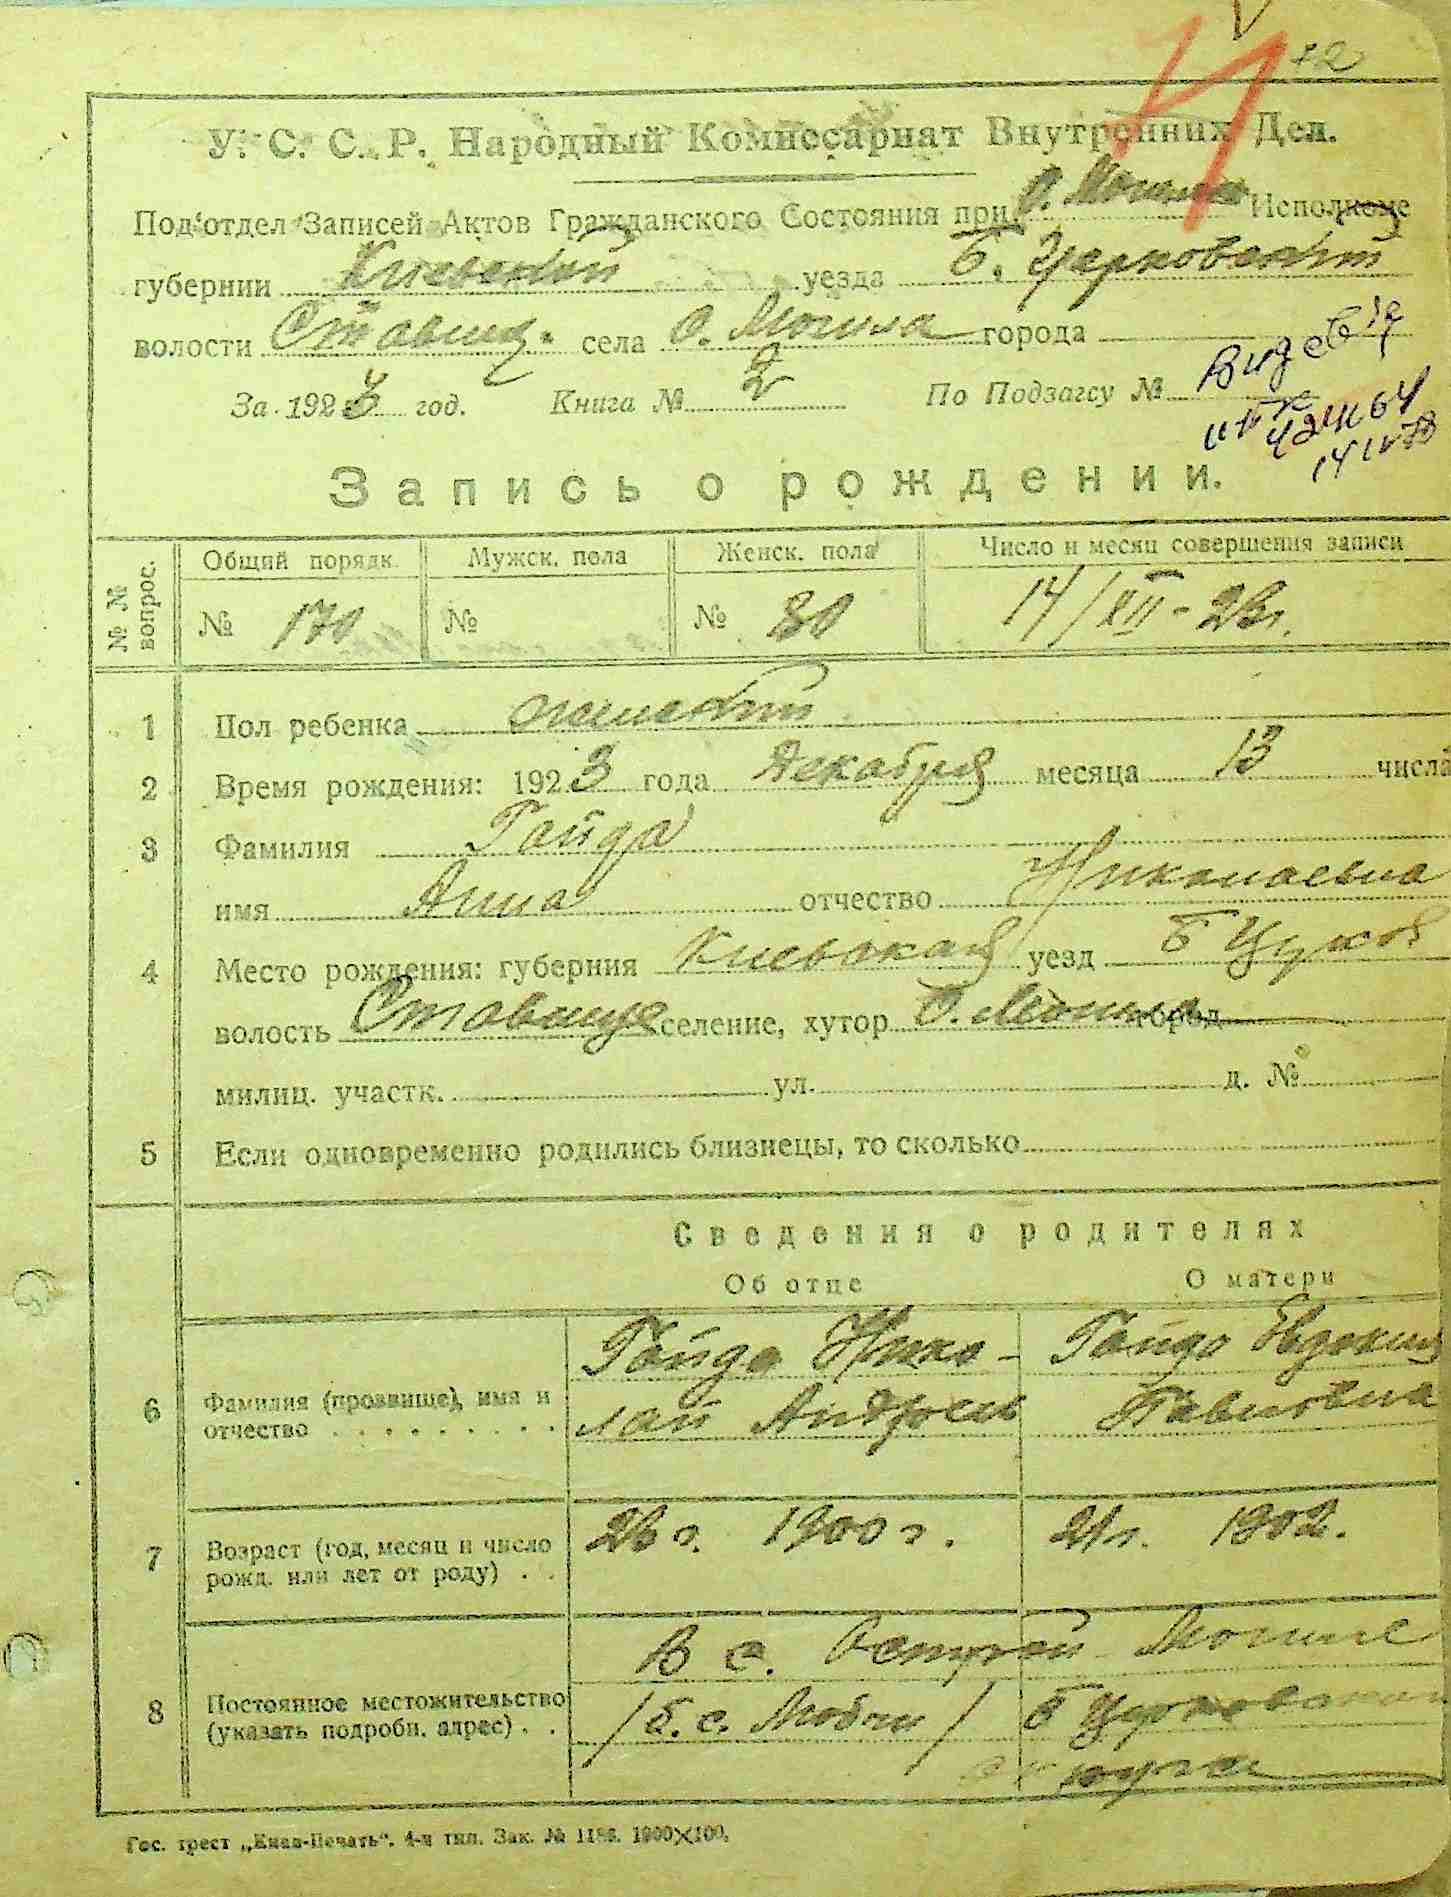 72
У. С. С. Р. Народный Комиссариат Внутренних Дел.
Под'отдел Записей Актов Гражданского Состояния при О. Могила Исполкоме
губернии Киевский уезда Б. Церковский
волости Ставищ. села О. Могила города
За 1923 год. Книга № 2 По Подзагсу №
14 IV 78
Запись о рождении.
№ № вопрос. Общий порядк. Мужск. пола Женск. пола Число и месяц совершения записи
№ 170 № № 80 14/XII-23г.
1 Пол ребенка женский
2 Время рождения: 1923 года Декабря месяца 13 числа
3 Фамилия Гайда
имя Анна отчество Николаевна
4 Место рождения: губерния Киевская уезд Б Церков
волость Ставище селение, хутор О. Могила город
милиц. участк. ул. д. №
5 Если одновременно родились близнецы, то сколько
Сведения о родителях
Об отце О матери
6 Фамилия (прозвище), имя и отчество
Гайда Нико- Гайда Евдокия
лай Андреев Павловна
7 Возраст (год, месяц и число рожд. или лет от роду)
23 г. 1900 г. 21 г. 1902.
8 Постоянное местожительство (указать подробн. адрес)
В с. Острой Могиле
Б Церковской
округи
Гос. трест „Киев-Печать“. 4-я тип. Зак. № 1186. 1000×100.